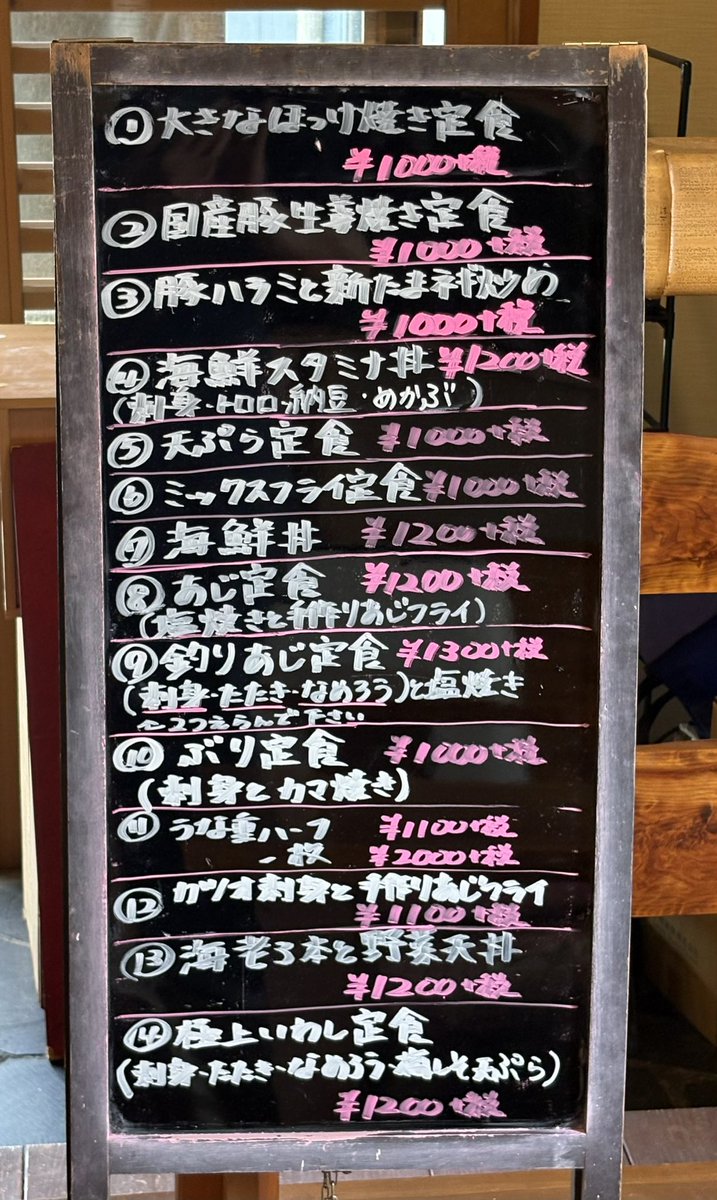 ① 大きなほっけ焼き定食
¥1000+税
② 国産豚生姜焼き定食
¥1000+税
③ 豚ハラミと新たまネギ炒め
¥1000+税
④ 海鮮スタミナ丼 ¥1200+税
(刺身・トロロ・納豆・めかぶ)
⑤ 天ぷら定食 ¥1000+税
⑥ ミックスフライ定食 ¥1000+税
⑦ 海鮮丼 ¥1200+税
⑧ あじ定食 ¥1200+税
(塩焼きと手作りあじフライ)
⑨ 釣りあじ定食 ¥1300+税
(刺身・たたき・なめろう)と塩焼き
←2つえらんで下さい
⑩ ぶり定食 ¥1000+税
(刺身とカマ焼き)
⑪ うな重ハーフ ¥1100+税
一枚 ¥2000+税
⑫ カツオ刺身と手作りあじフライ
¥1100+税
⑬ 海老3本と野菜天丼
¥1200+税
⑭ 極上いわし定食
(刺身・たたき・なめろう・梅しそ天ぷら)
¥1200+税